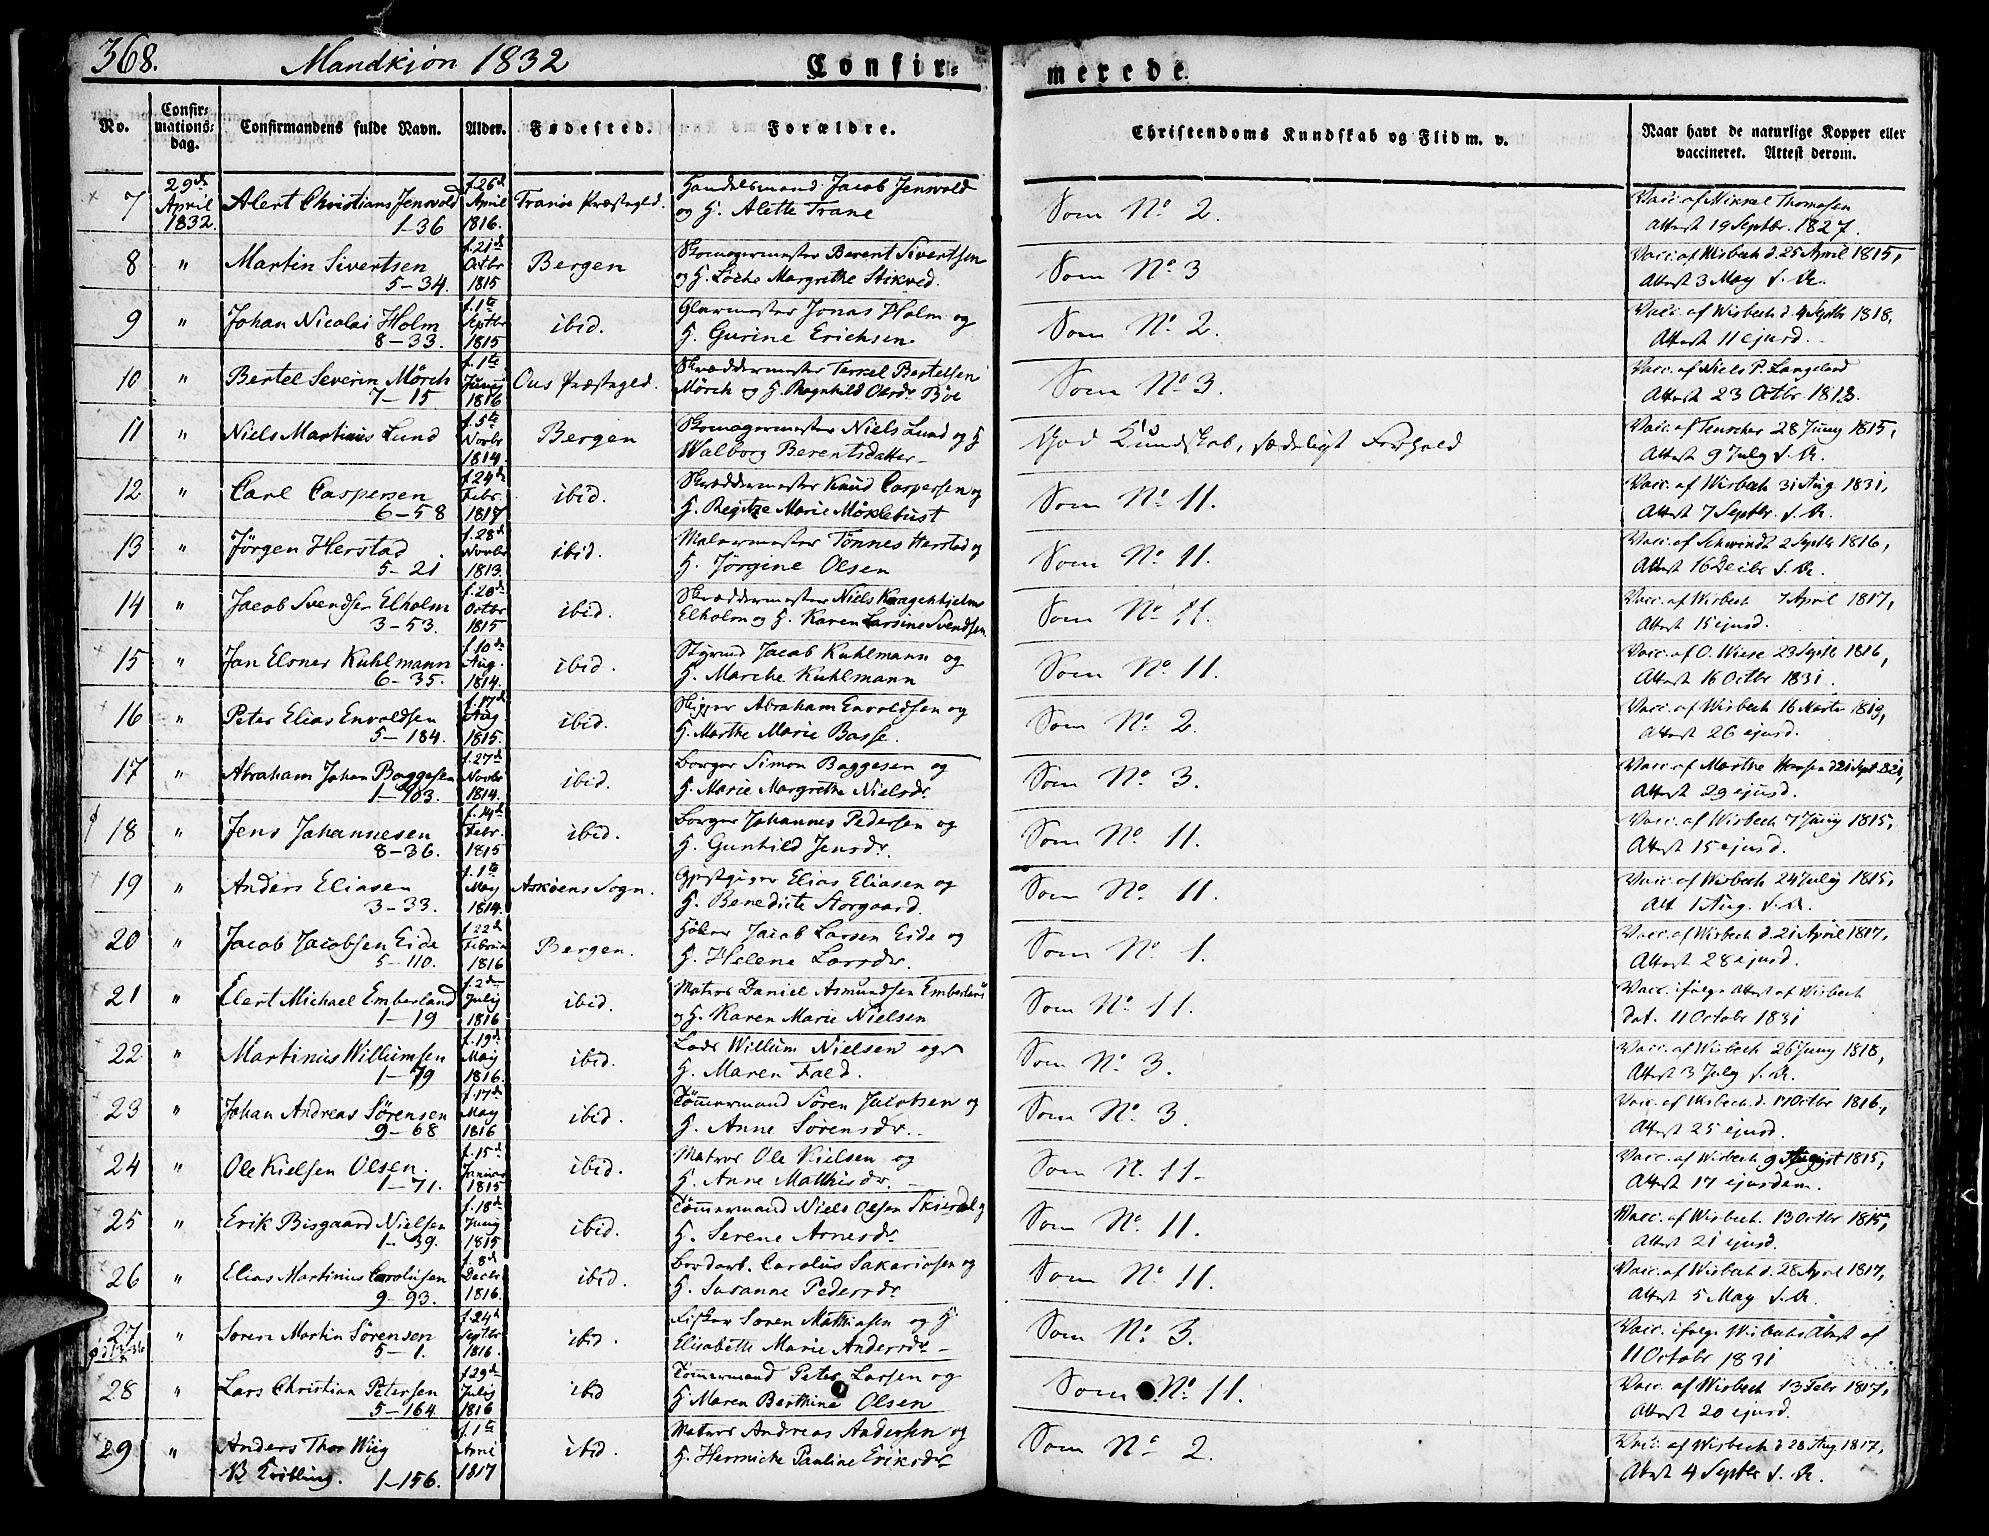 368. Mandkjøn 1832 Confir-
merede.
No. Confir-mations-dag. Confirmandens fulde Navn. Alder. Fødested. Forældre. Christendoms Kundskab og Flid m. v. Naar havt de naturlige Kopper eller vaccineret. Attest derom.
7 29de April 1832. Alert Christians Jenswold 1-36 f. 26d April 1816. Tranøe Præstegld. Handelsmand Jacob Jenswold og H. Alette Trane Som No. 2. Vacc. af Mikkel Thomasen Attest 19 Septbr. 1827.
8 " Martin Sivertsen 5-34. f. 21d Octbr 1815 Bergen Skomagermester Berent Sivertsen og H. Margrethe Som No. 3 Vacc. af Wisbech d. 25 April 1815, Attest 3 May s. A.
9 " Johan Nicolai Holm 8-33. f. 1te Septbr 1815 ibid. Glarmester Jonas Holm og H. Gurine Erichsen Som No. 2. Vacc. af Wisbech d. 4 Septbr 1818, Attest 11 ejusd.
10 " Bertel Severin Mörch 7-15 f. 1te Junij 1816 Ous Præstegld. Skræddermester Terkel Bertelsen Mörch og H. Ragnhild Olesdr Böe Som No. 3. Vacc. af Niels P. Langeland Attest 23 Octbr. 1818.
11 " Niels Martinus Lund f. 5te Novbr 1814. Bergen Skomagermester Niels Lund og H Walborg Berentsdatter God Kundskab, sædeligt Forhold Vacc. af Teuscher 28 Juny 1815, Attest 9 July s. A.
12 " Carl Caspersen 6-58 f. 24d Febr. 1817 ibid. Skræddermester Knud Caspersen og H. Regitze Marie Möklebust Som No. 11. Vacc. af Wisbech 31 Aug 1831, Attest 7 Septbr. s. A.
13 " Jörgen Herstad 5-21 f. 28d Novbr 1813. ibid. Malermester Tönnes Herstad og H. Jörgine Olsen Som No. 11. Vacc. af Schwindt 2 Septbr 1816, Attest 16 Decbr s. A.
14 " Jacob Svendsen Elholm 3-53. f. 20d Octbr 1815 ibid. Skræddermester Niels Elholm og H. Karen Larsine Svendsen Som No. 11. Vacc. af Wisbech 7 April 1817, Attest 15 ejusd.
15 " Jan Elsner Kuhlmann 6-35. f. 10d Aug. 1814. ibid. Styrmd Jacob Kuhlmann og H. Marche Kuhlmann Som No. 11. Vacc. af O. Wiese 23 Septb 1816, Attest 16 Octbr 1831.
16 " Peter Elias Envoldsen 5-184. f. 17d Aug. 1815. ibid. Skipper Abraham Envoldsen og H. Marthe Marie Basse. Som No. 2. Vacc. af Wisbech 16 Marts 1819, Attest 26 ejusd.
17 " Abraham Johan Baggesen 1-103. f. 27d Novbr 1814. ibid. Borger Simon Baggesen og H. Marie Margrethe Nielsdr. Som No. 3. Vacc. af Marthe Hansen d 21 Sept 821, Attest 29 ejusd.
18 " Jens Johannesen 8-36. f. 14d Febr. 1815 ibid. Borger Johannes Pedersen og H. Gunhild Jensdr. Som No. 11. Vacc. af Wisbech 7 Junij 1815, Attest 15 ejusd.
19 " Anders Eliasen 3-33. f. 1te May 1814. Askøens Sogn. Gjestgiver Elias Eliasen og H. Benedicte Storgaard. Som No. 11. Vacc. af Wisbech 24 July 1815, Att. 1 Aug. s. A.
20 " Jacob Jacobsen Eide 5-110. f. 22d Februar 1816 Bergen. Høker Jacob Larsen Eide og H. Helene Larsdr. Som No. 1. Vacc. af Wisbech d. 21 April 1817, Attest 28 ejusd.
21 " Elert Michael Emberland 1-19 f. 2d July 1816 ibid. Matros Daniel Asmundsen Emberland og H. Karen Marie Nielsen Som No. 11. Vacc. ifølge Attest af Wisbech dat. 11 Octobr 1831
22 " Martinus Willumsen 1-79 f. 19d May 1816. ibid. Lods Willum Nielsen og H. Maren Fæd. Som No. 3. Vacc. af Wisbech 26 Juny 1818, Attest 3 July s. A.
23 " Johan Andreas Sörensen 9-68 f. 17d May 1816 ibid. Tömmermand Sören Jacobsen og H. Anne Sörensdr. Som No. 3. Vacc. af Wisbech d. 17 Octbr 1816, Attest 25 ejusd.
24 " Ole Kielsen Olsen. 1-71. f. 15d Januar 1815 ibid. Matros Ole Kielsen og H. Anne Matthisdr. Som N. 11- Vacc. af Wisbech 9 August 1815, Attest 17 ejusdem.
25 " Erik Bisgaard Nielsen 1-39. f. 18d Juny 1815 ibid. Tömmermand Niels Olsen Skierdal og H. Serene Arnesdr Som No. 11. Vacc. af Wisbech. 13 Octbr 1815, Attest 21 ejusd.
26 " Elias Martinius Carolusen 9-93. f. 8d Decbr 1816. ibid. Bordarb. Carolus Sakariasen og H. Susanne Pedersdr Som No. 11. Vacc. af Wisbech d. 28 April 1817, Attest 5 May s. A.
27 " Sören Martin Sörensen 5-1. f. 24d Septbr 1816. ibid. Fisker Sören Mathiasen og H Elisabeth Marie Andersdr - Som No. 3. Vacc. ifølge Wisbechs Attest af 11 Octobr 1831
28 " Lars Christian Petersen 5-164 f. 29d July 1816 ibid Tömmermand Peter Larsen og H. Maren Berthine Olsen Som No. 11. Vacc. af Wisbech 13 Febr 1817, Attest 20 ejusd.
29 " Anders Thor Wiig NB Tvilling. 1-156. f. 1te 1817 ibid. Matros Andreas Andersen og H. Henricke Pauline Eriksdr Som No. 2. Vacc. af Wisbech d 28 Aug 1817, Attest 4 Septbr s. A.